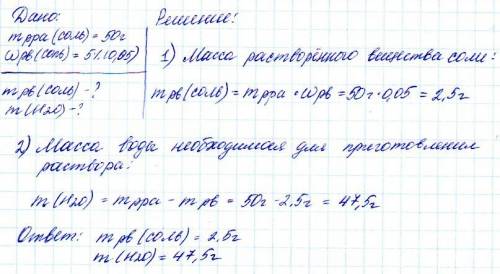 Дано:
m рра (соль) = 50г
ωрв (соль) = 5% (0,05)
m рв (соль) - ?
m (H2O) - ?
Решение:
1) Масса растворённого вещества соли:
m рв (соль) = m рра • ω рв = 50г • 0,05 = 2,5г
2) Масса воды необходимая для приготовления
раствора:
m (H2O) = m рра - m рв = 50г - 2,5г = 47,5г
Ответ: m рв (соль) = 2,5г
m (H2O) = 47,5г